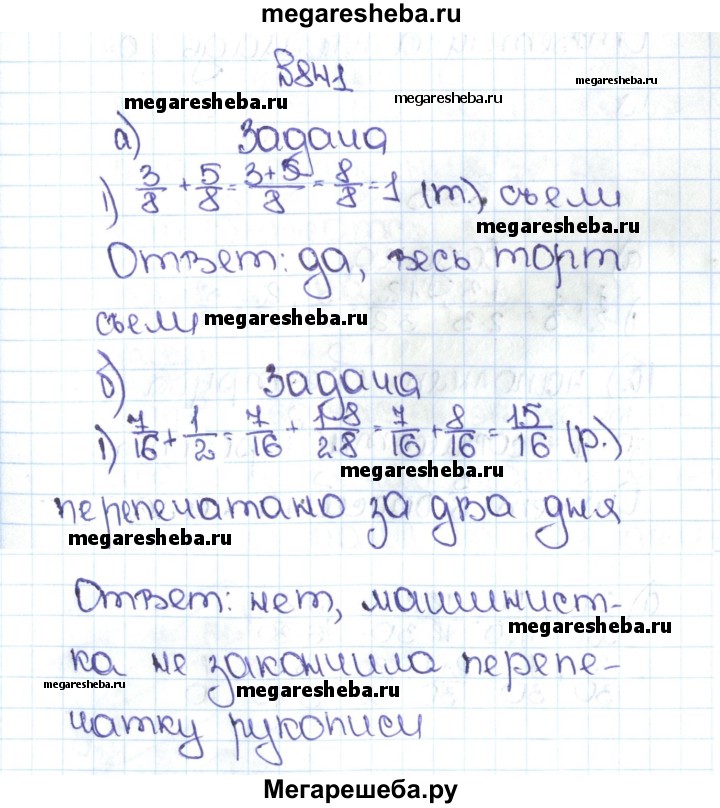 megaresheba.ru
В841
megaresheba.ru
megaresheba.ru
megaresheba.ru
а) Задача
1) 3/8 + 5/8 = 3+5/8 = 8/8 = 1 (т.), съели
megaresheba.ru
Ответ: да, весь торт
съели
megaresheba.ru
б) Задача
1) 7/16 + 1/2 = 7/16 + 1·8/2·8 = 7/16 + 8/16 = 15/16 (р.)
megaresheba.ru
перепечатано за два дня
megaresheba.ru
Ответ: нет, машинист-
megaresheba.ru
ка не закончила перепе-
megaresheba.ru
megaresheba.ru
чатку рукописи
Мегарешеба.ру